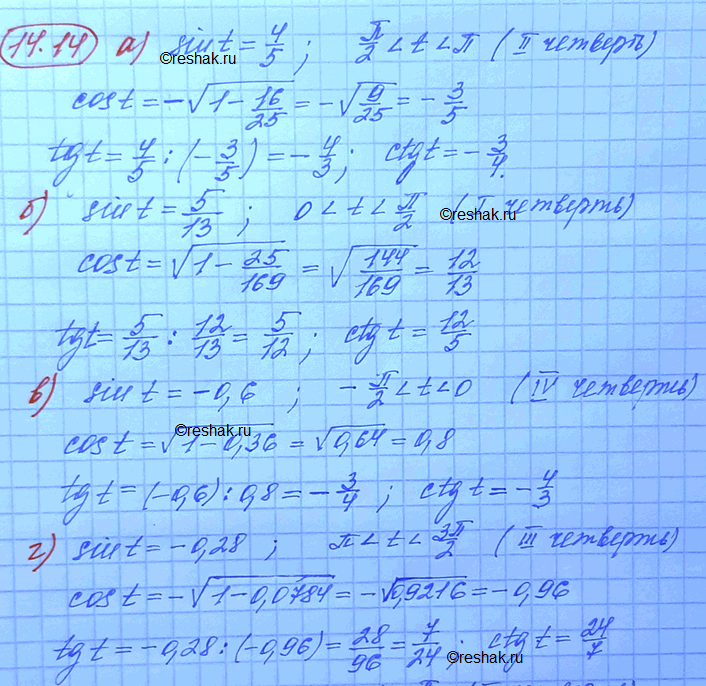 14.14 а) sin t = 4/5 ; π/2 < t < π (II четверть)
©reshak.ru
cos t = -√(1 - 16/25) = -√(9/25) = -3/5
tg t = 4/5 : (-3/5) = -4/3 ; ctg t = -3/4.
б) sin t = 5/13 ; 0 < t < π/2 (I четверть)
©reshak.ru
cos t = √(1 - 25/169) = √(144/169) = 12/13
tg t = 5/13 : 12/13 = 5/12 ; ctg t = 12/5
в) sin t = -0,6 ; -π/2 < t < 0 (IV четверть)
©reshak.ru
cos t = √(1-0,36) = √0,64 = 0,8
tg t = (-0,6) : 0,8 = -3/4 ; ctg t = -4/3
г) sin t = -0,28 ; π < t < 3π/2 (III четверть)
cos t = -√(1-0,0784) = -√0,9216 = -0,96
tg t = -0,28 : (-0,96) = 28/96 = 7/24 ; ctg t = 24/7
©reshak.ru